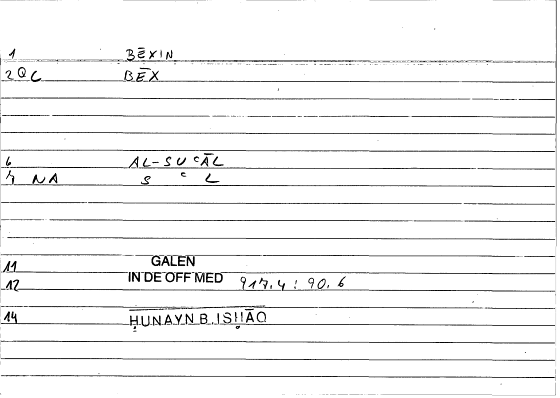 1 BĒXIN
2 QC BĒX
6 AL-SUʿĀL
7 NA S ʿ L
11 GALEN
12 IN DE OFF MED 917.4 : 90.6
14 ḤUNAYN B. ISḤĀQ